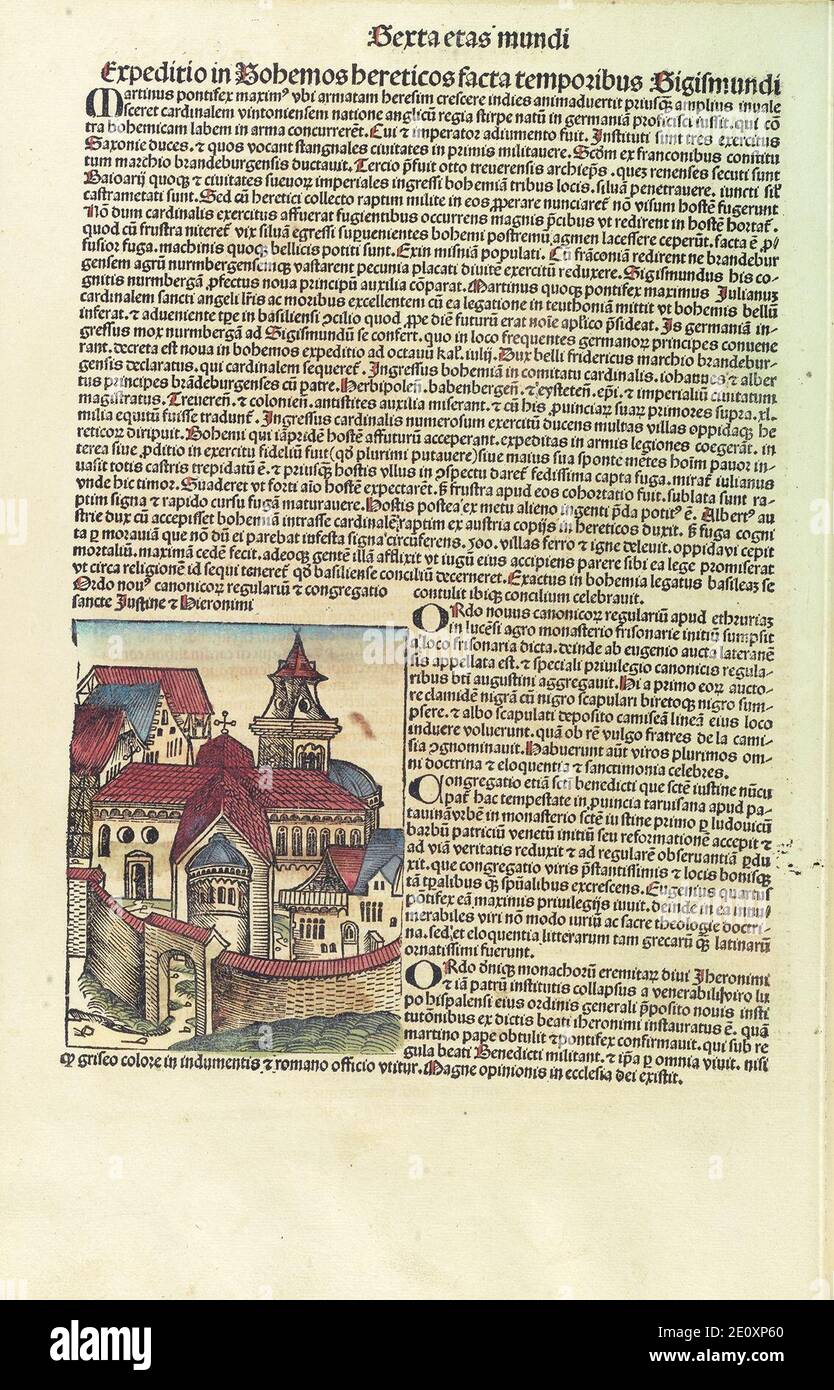 Sexta etas mundi
Expeditio in Bohemos hereticos facta temporibus Sigismundi
Martinus pontifex maximꝰ vbi armatam heresim crescere indies animaduertit priusq̃ amplius inuale
sceret cardinalem vintoniensem natione anglicũ regia stirpe natũ in germaniã proficisci iussit. qui cõ
tra bohemicam labem in arma concurrerẽt. Cui ⁊ imperator adiumento fuit. Instituti sunt tres exercitus
Saxonie duces. ⁊ quos vocant stangnales ciuitates in primis militauere. Scd̃m ex franconibus constitu
tum marchio brandeburgensis ductauit. Tercio p̃fuit otto treuerensis archiep̃s. quez renenses secuti sunt
Baioarij quoqꜛ ⁊ ciuitates sueuoꝝ imperiales ingressi bohemiã tribus locis. siluã penetrauere. iuncti sil̃
castrametati sunt. Sed cũ heretici collecto raptim milite in eos ꝓperare nunciarẽt nõ visum hostẽ fugerunt
Nõ dum cardinalis exercitus affuerat fugientibus occurrens magnis p̃cibus vt redirent in hostẽ hortat̃.
quod cũ frustra niteret̃ vix siluã egressi supuenientes bohemi postremũ agmen lacessere ceperũt. facta ẽ ꝓ
fusior fuga. machinis quoqꜛ bellicis potiti sunt. Exin misniã populati. Cũ frãconiã redirent ne brandebur
gensem agrũ nurmbergensemqꜛ vastarent pecunia placati diuitẽ exercitũ reduxere. Sigismundus his co-
gnitis nurmbergã ꝓfectus noua principũ auxilia cõparat. Martinus quoqꜛ pontifex maximus Julianuz
cardinalem sancti angeli lr̃is ac moribus excellentem cũ ea legatione in teuthoniã mittit vt bohemis bellũ
inferat. ⁊ adueniente tp̃e in basiliensi ↄcilio quod ꝓpe diẽ futurũ erat noĩe aplico p̃sideat. Is germaniã in-
gressus mox nurmbergã ad Sigismundũ se confert. quo in loco frequentes germanoꝝ principes conuene
rant. decreta est noua in bohemos expeditio ad octauũ kal̃. iulij. Dux belli fridericus marchio brandebur-
gensis declaratus. qui cardinalem sequeret̃. Ingressus bohemiã in comitatu cardinalis. iohannes ⁊ alber
tus principes brãdeburgenses cũ patre. Herbipoleñ. babenbergeñ. ⁊ eysteteñ. ep̃i. ⁊ imperialiũ ciuitatum
magistratus. Treuereñ. ⁊ colonien̄. antistites auxilia miserant. ⁊ cũ his ꝓuinciaꝝ suaꝝ primores supra. xl.
milia equitũ fuisse tradunt̃. Ingressus cardinalis numerosum exercitũ ducens multas villas oppidaqꜛ he
reticoꝝ diripuit. Bohemi qui iampridẽ hostẽ affuturũ acceperant. expeditas in armis legiones coegerãt. in
terea siue ꝓditio in exercitu fideliũ fuit (qd̃ plurimi putauere) siue maius sua sponte mẽtes hoĩm pauor in-
uasit totis castris trepidatũ ẽ. ⁊ priusq̃ hostis vllus in ↄspectu daret̃ fedissima capta fuga. mirat̃ iulianus
vnde hic timor. Suaderet vt forti aĩo hostẽ expectarẽt. s̃ frustra apud eos cohortatio fuit. sublata sunt ra-
ptim signa ⁊ rapido cursu fugã maturauere. Hostis postea ex metu alieno ingenti p̃da potitꝰ ẽ. Albertꝰ au
strie dux cũ accepisset bohemiã intrasse cardinalẽ raptim ex austria copijs in hereticos duxit. s̃ fuga cogni
ta p morauiam que nõ dũ ei parebat infesta signa circũferens. 500. villas ferro ⁊ igne deleuit. oppida vi cepit
mortaliũ. maximã cedẽ fecit. adeoqꜛ gentẽ illã afflixit vt iugũ eius accipiens parere sibi ea lege promiserat
vt circa religionẽ id sequi teneret̃ qd̃ basiliense conciliũ decerneret. Exactus in bohemia legatus basileaz se
contulit ibiqꜛ concilium celebrauit.
Ordo nouꝰ canonicoꝝ regulariũ ⁊ congregatio
sancte Justine ⁊ Hieronimi
ORdo nouus canonicoꝝ regulariũ apud ethruriaz
in lucẽsi agro monasterio frisonarie initiũ sumpsit
a loco frisonaria dicta. deinde ab eugenio aucta lateranẽ
sis appellata est. ⁊ speciali priuilegio canonicis regula-
ribus bt̃i augustini aggregauit. Hi a primo eoꝝ aucto-
re clamidẽ nigrã cũ nigro scapulari biretoqꜛ nigro sum-
psere. ⁊ albo scapulati deposito camiseã lineã eius loco
induere voluerunt. quã ob rẽ vulgo fratres de la cami-
sia ↄgnominauit. Habuerunt aũt viros plurimos om-
ni doctrina ⁊ eloquentia ⁊ sanctimonia celebres.
Congregatio etiã scti benedicti que scte iustine nũcu
pat̃ hac tempestate in ꝓuincia taruisana apud pa-
tauinã vrbẽ in monasterio scte iustine primo p ludouicũ
barbũ patriciũ venetũ initiũ seu reformationẽ accepit ⁊
ad viã veritatis reduxit ⁊ ad regularẽ obseruantiã pdu
xit. que congregatio viris p̃stantissimis ⁊ locis bonisqꜛ
tã tp̃alibus q̃ sp̃ualibus excrescens. Eugenius quartus
pontifex eã maximis priuilegijs iuuit. deinde in ea innu
merabiles viri nõ modo iuriũ ac sacre theologie doctri-
na. sed et eloquentia litterarum tam grecarũ q̃ latinarũ
ornatissimi fuerunt.
ORdo dĩuiqꜛ monachorũ eremitaꝝ diui Jheronimi
⁊ iã patrũ institutis collapsus a venerabili viro lu
po hispalensi eius ordinis generali p̃posito nouis insti
tutõnibus ex dictis beati iheronimi instauratus ẽ. quã
martino pape obtulit ⁊ põtifex confirmauit. qui sub re
gula beati Benedicti militant ⁊ ip̃a p omnia viuit. nisi
qꝫ griseo colore in indumentis ⁊ romano officio vtitur. Magne opinionis in ecclesia dei existit.
alamy
alamy
Image ID: 2E0XP60
www.alamy.com